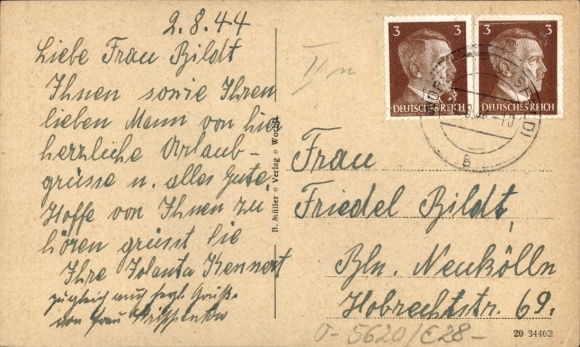 2.8.44
Liebe Frau Bildt
Ihnen sowie Ihren
lieben Mann von hier
herzliche Urlaub-
grüsse u. alles Gute
Hoffe von Ihnen zu
hören grüsst Sie
Ihre Jolanta Kennert
zugleich auch herzl. Grüße
von Frau
B. Müller * Verlag *
3 3
DEUTSCHES REICH DEUTSCHES REICH
Frau
Friedel Bildt,
Bln. Neukölln
Hobrechtstr. 69.
0-5620/E28-
20 34462